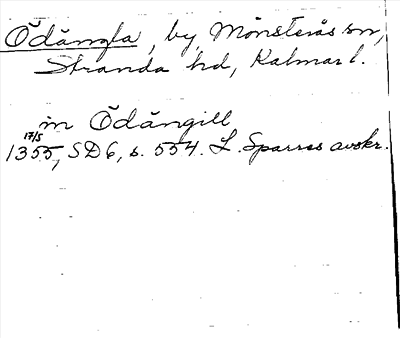 Ödångla, by, Mönsterås sn,
Stranda hd, Kalmar l.
in Ödångill
17/5
1355, SD 6, s. 554. L. Sparres avskr.